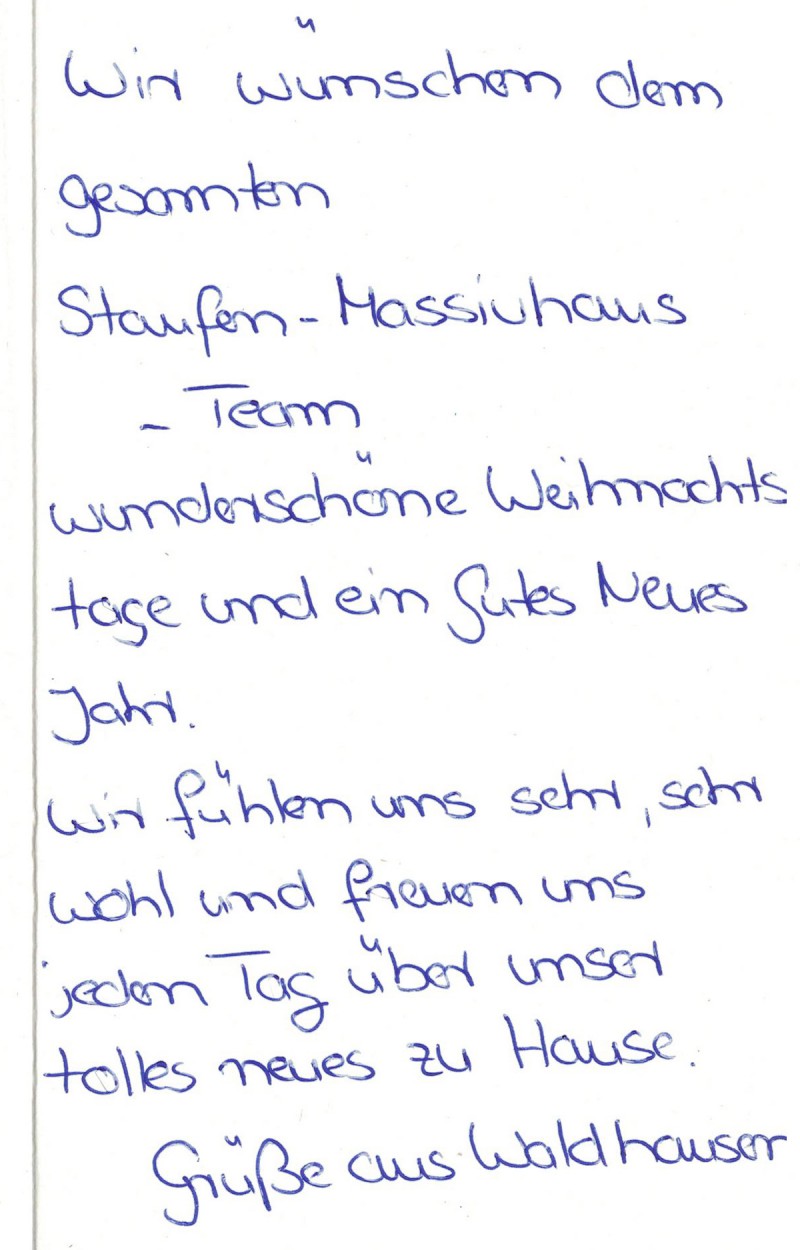 Wir wünschen dem
gesamten
Staufen-Massivhaus
- Team
wunderschöne Weihnachts
tage und ein gutes Neues
Jahr.
Wir fühlen uns sehr, sehr
wohl und freuen uns
jeden Tag über unser
tolles neues zu Hause.
Grüße aus Waldhausen